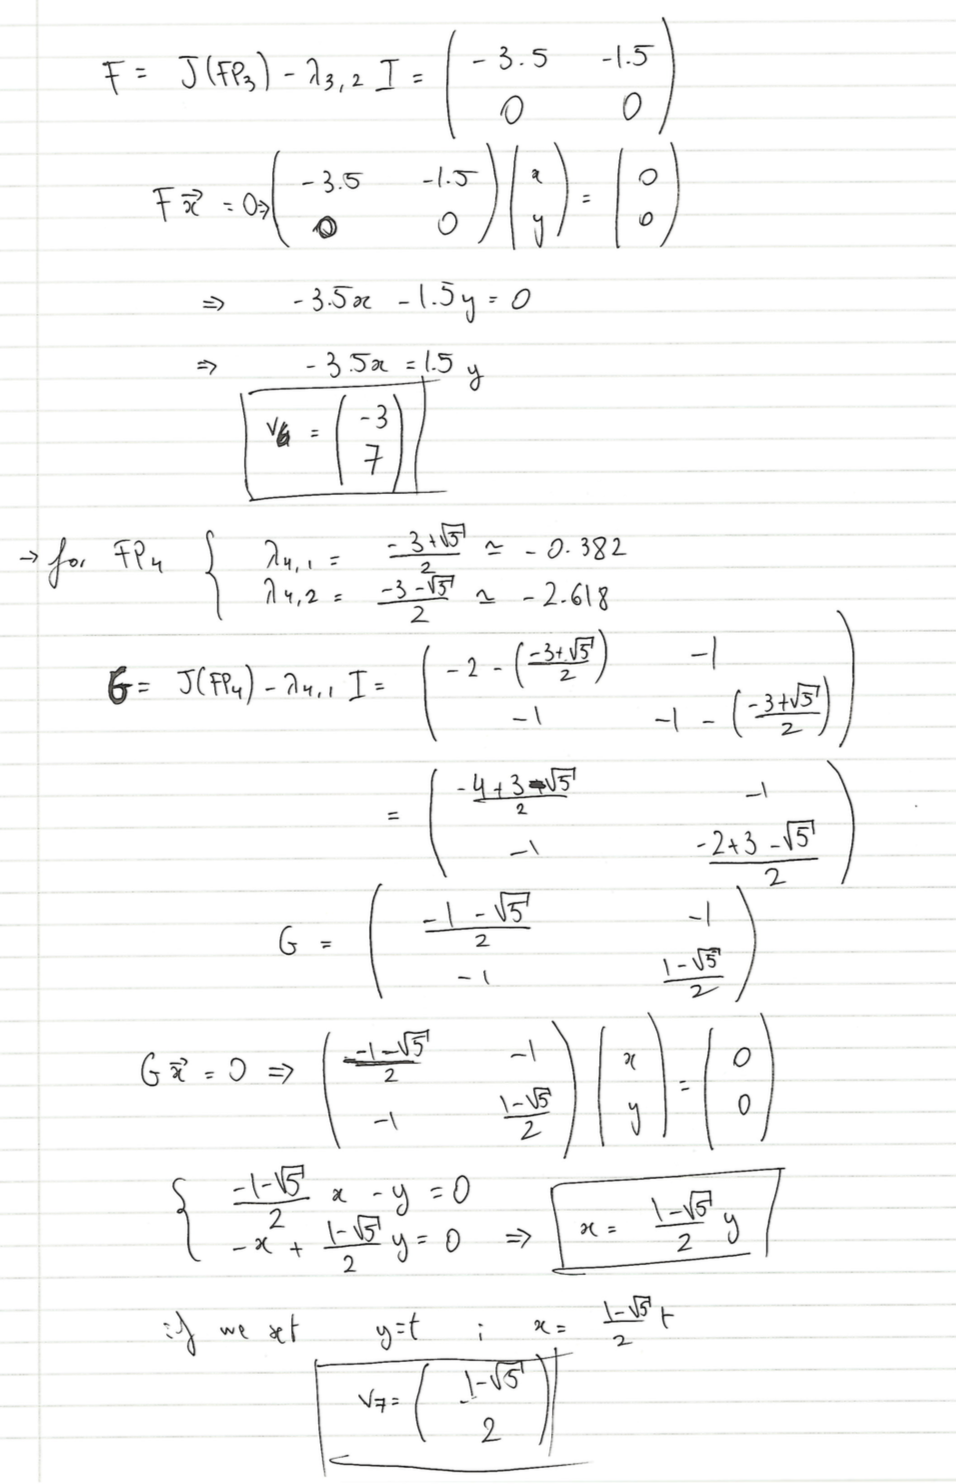 F = J(FP₃) - λ₃,₂ I = ( -3.5 -1.5
0 0 )
F x⃗ = 0 ⇒ ( -3.5 -1.5
0 0 ) ( x
y ) = ( 0
0 )
⇒ -3.5x - 1.5y = 0
⇒ -3.5x = 1.5 y
v₆ = ( -3
7 )
→ for FP₄ { λ₄,₁ = (-3+√5)/2 ≃ -0.382
λ₄,₂ = (-3-√5)/2 ≃ -2.618
G = J(FP₄) - λ₄,₁ I = ( -2 - ((-3+√5)/2) -1
-1 -1 - ((-3+√5)/2) )
= ( (-4+3-√5)/2 -1
-1 (-2+3-√5)/2 )
G = ( (-1-√5)/2 -1
-1 (1-√5)/2 )
G x⃗ = 0 ⇒ ( (-1-√5)/2 -1
-1 (1-√5)/2 ) ( x
y ) = ( 0
0 )
{ (-1-√5)/2 x - y = 0
-x + (1-√5)/2 y = 0 ⇒ x = (1-√5)/2 y
if we set y=t ; x = (1-√5)/2 t
v₇ = ( 1-√5
2 )